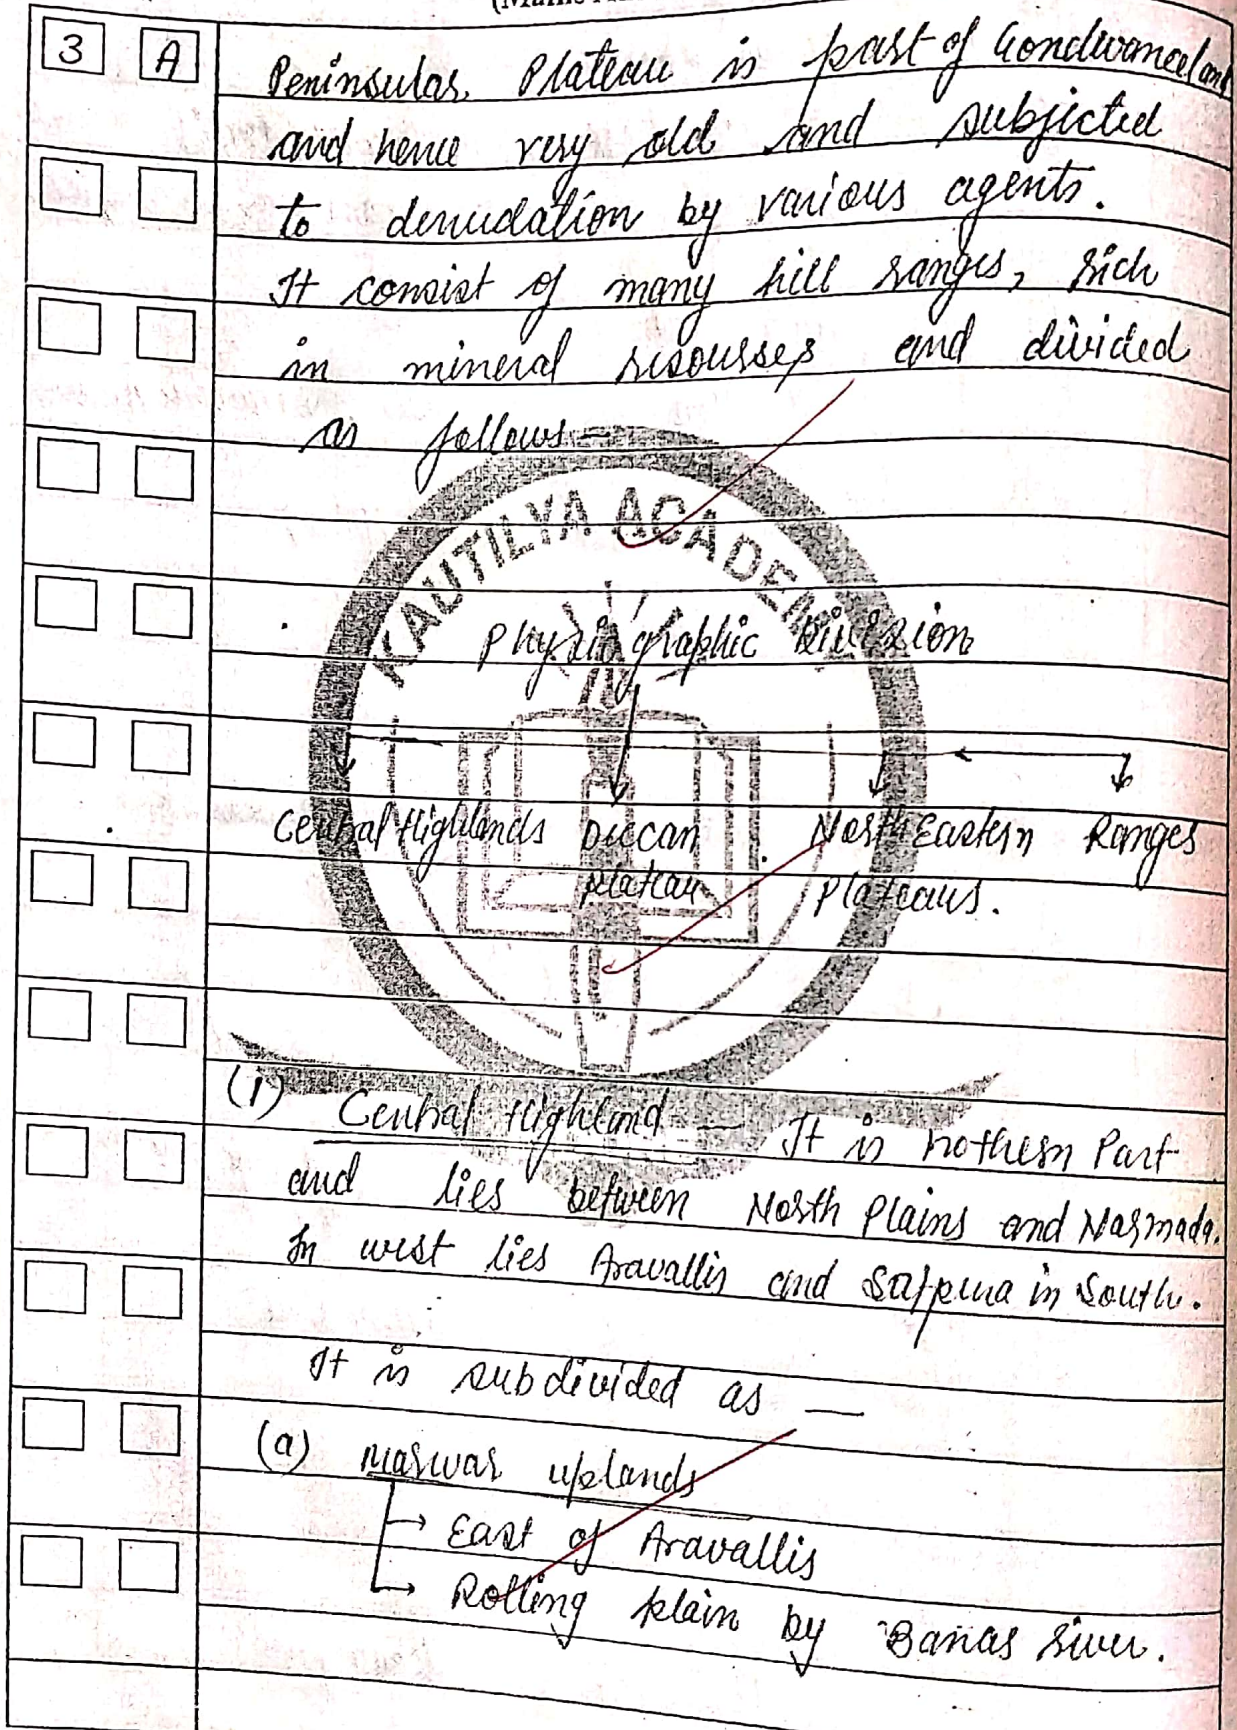 3 A
Peninsular Plateau is part of Gondwanaland
and hence very old and subjected
to denudation by various agents.
It consist of many hill ranges, rich
in mineral resourses and divided
as follows -
KAUTILYA ACADEMY
Physiographic Division
Central Highlands Deccan North Eastern Ranges
plateau Plateaus.
(1) Central Highland — It is nothern Part
and lies between North Plains and Narmada.
In west lies Aravallis and Satpura in South.
It is subdivided as —
(a) Marwar uplands
→ East of Aravallis
→ Rolling plain by Banas river.